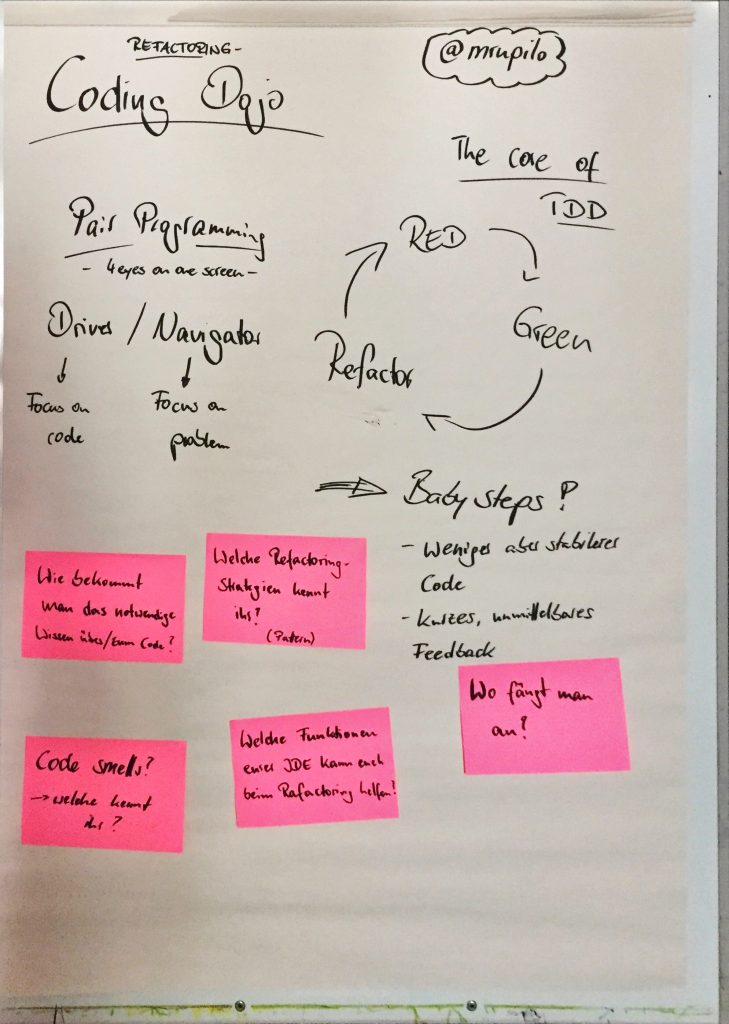 REFACTORING-
Coding Dojo
@mrupilo
The core of
TDD
Pair Programming
- 4 eyes on one screen -
Driver / Navigator
Focus on
code
Focus on
problem
RED
Green
Refactor
Baby steps?
- Weniger aber stabileres
Code
- kurzes, unmittelbares
Feedback
Wie bekommt
man das notwendige
Wissen über/zum Code?
Welche Refactoring-
Strategien kennt
ihr?
(Patern)
Wo fängt man
an?
Code smells?
→ welche kennt
ihr?
Welche Funktionen
eurer IDE kann euch
beim Rafactoring helfen?